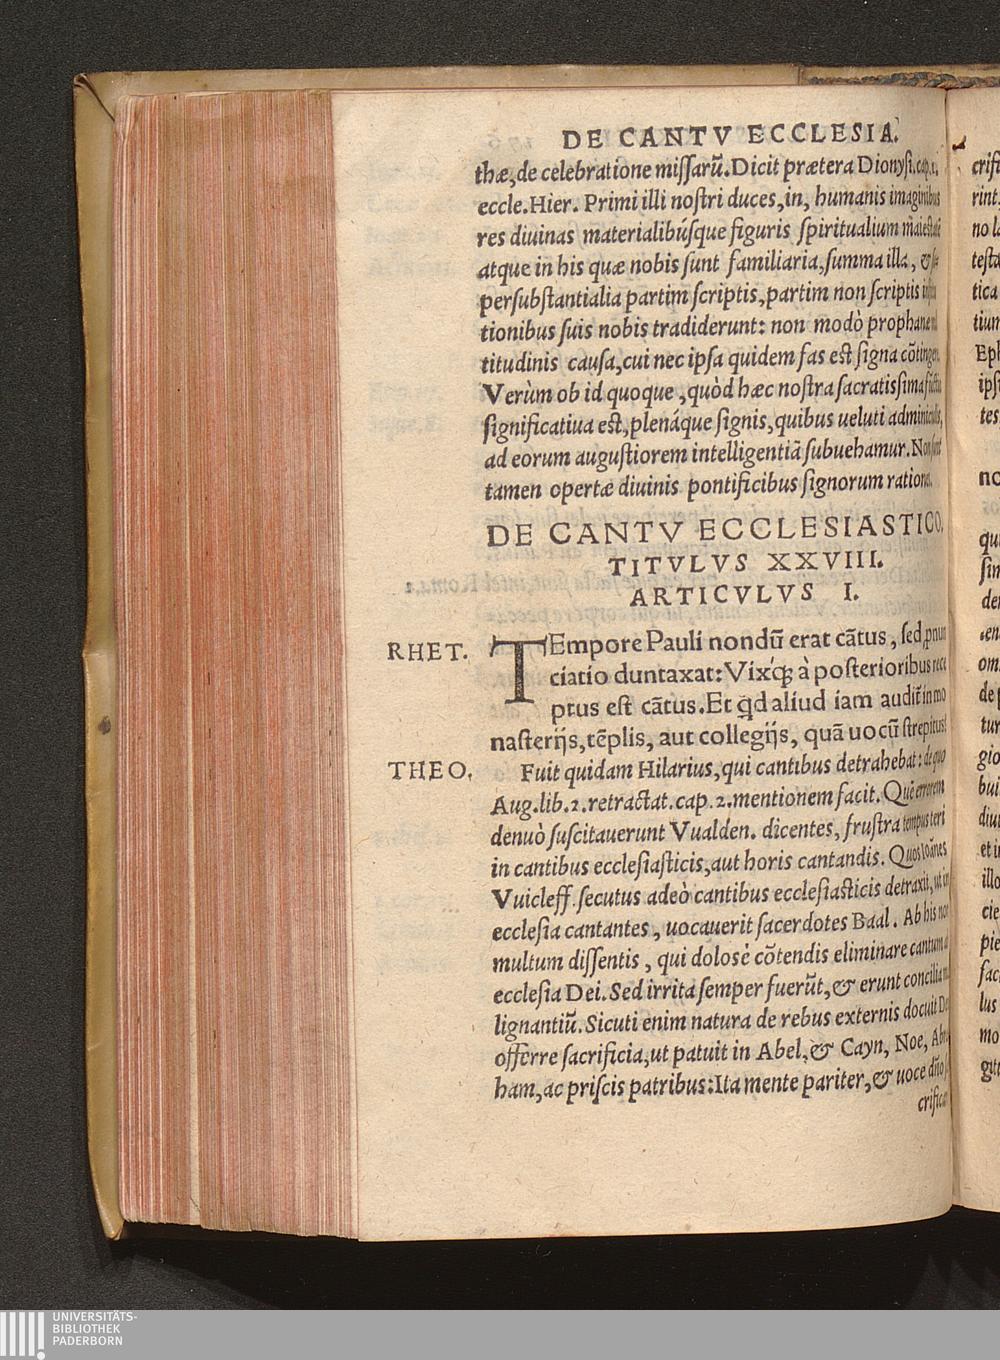 DE CANTV ECCLESIA.
thæ, de celebratione missarũ. Dicit prætera Dionysi. cap. 1.
eccle. Hier. Primi illi nostri duces, in, humanis imaginibus
res diuinas materialibúsque figuris spiritualium maiestatẽ
atque in his quæ nobis sunt familiaria, summa illa, &
persubstantialia partim scriptis, partim non scriptis
tionibus suis nobis tradiderunt: non modò prophanæ
titudinis causa, cui nec ipsa quidem fas est signa cõtingere.
Verùm ob id quoque, quòd hæc nostra sacratissima
significatiua est, plenáque signis, quibus ueluti adminiculis,
ad eorum augustiorem intelligentiã subuehamur. Non sunt
tamen opertæ diuinis pontificibus signorum rationes.
DE CANTV ECCLESIASTICO,
TITVLVS XXVIII.
ARTICVLVS I.
RHET. TEmpore Pauli nondũ erat cãtus, sed ꝓnun
ciatio duntaxat: Vixq́ꝫ à posterioribus rece
ptus est cãtus. Et qd aliud iam audit̃ in mo
nasterijs, tẽplis, aut collegijs, quã uocũ strepitus?
THEO. Fuit quidam Hilarius, qui cantibus detrahebat: de quo
Aug. lib. 2. retractat. cap. 2. mentionem facit. Quẽ errorem
denuò suscitauerunt Vualden. dicentes, frustra tempus teri
in cantibus ecclesiasticis, aut horis cantandis. Quos Ioãnes
Vuicleff. secutus adeò cantibus ecclesiasticis detraxit, ut in
ecclesia cantantes, uocauerit sacerdotes Baal. Ab his non
multum dissentis, qui dolosè cõtendis eliminare cantum a
ecclesia Dei. Sed irrita semper fuerũt, & erunt concilia ma
lignantiũ. Sicuti enim natura de rebus externis docuit Deo
offerre sacrificia, ut patuit in Abel, & Cayn, Noe, Abra
ham, ac priscis patribus: Ita mente pariter, & uoce dño sa
crifica
crifi
rint.
no la
testa
tica
tium
Eph
ipsi
tes
no
qui
sin
den
om
de p
tur
gio
bui
diui
et i
illo
cie
pie
fac
lus
mo
git
UNIVERSITÄTS-
BIBLIOTHEK
PADERBORN